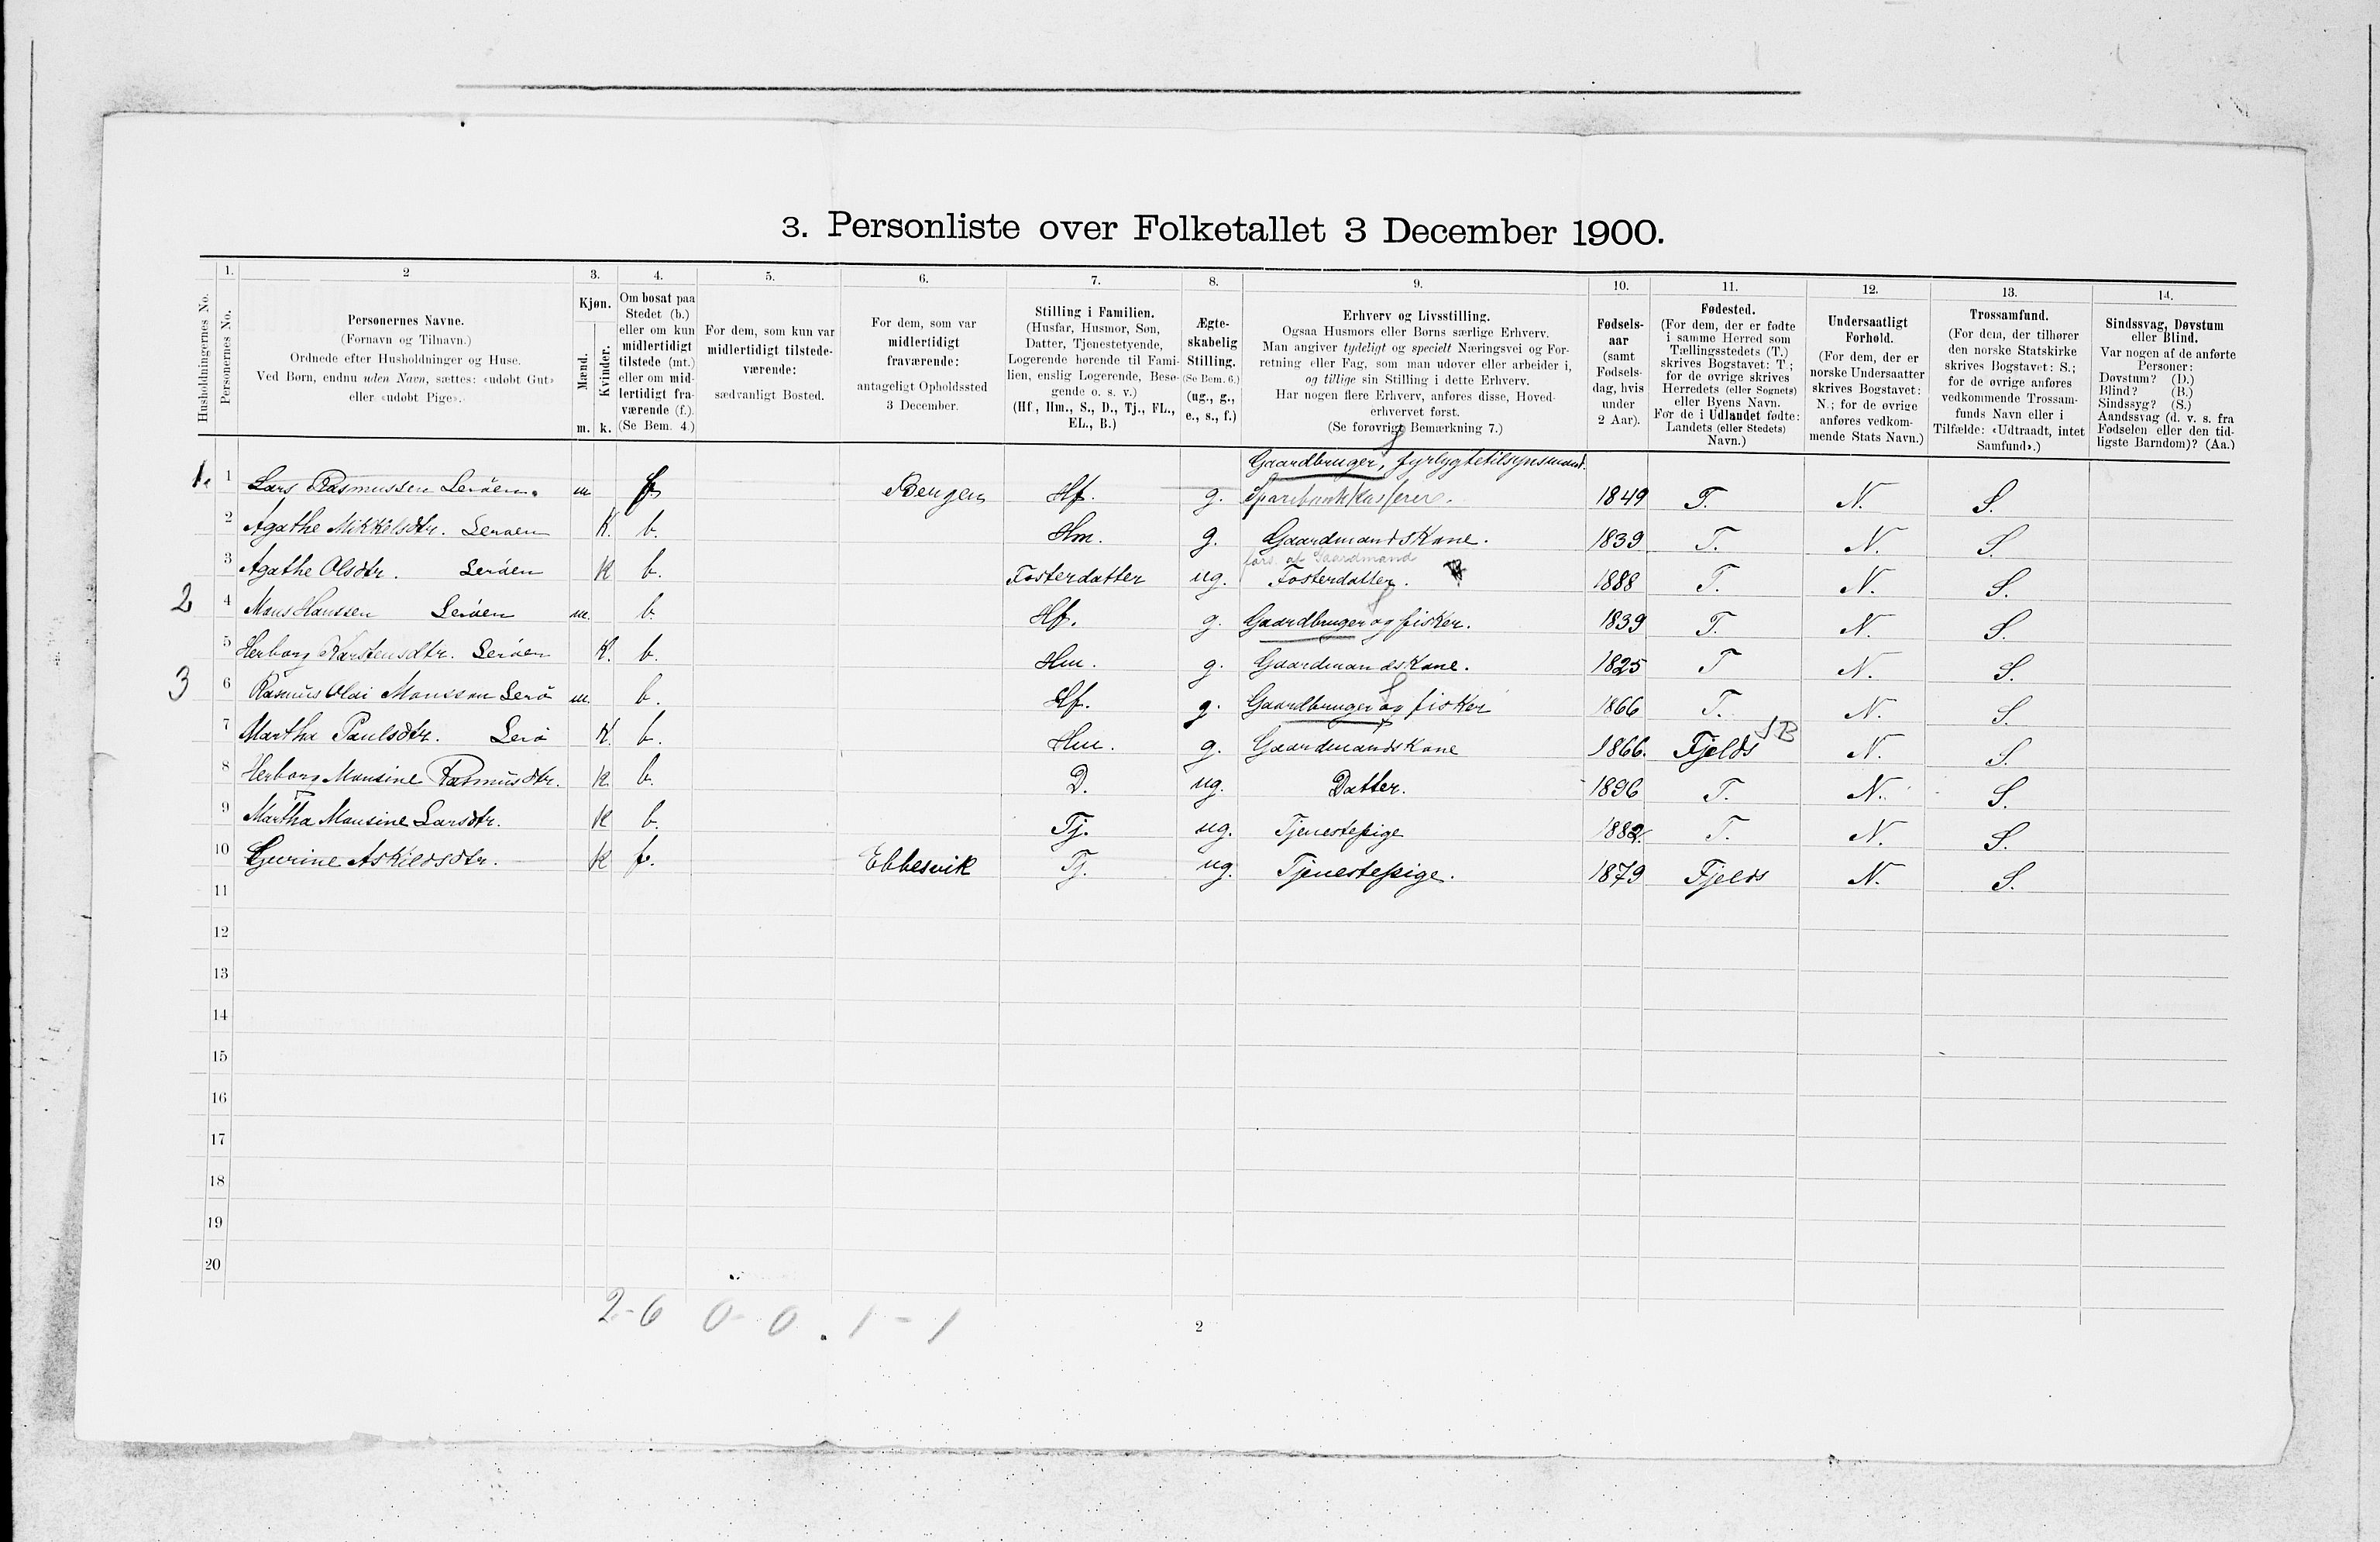 3. Personliste over Folketallet 3 December 1900.
Husholdningernes No.
1.
Personernes No.
2
Personernes Navne.
(Fornavn og Tilnavn.)
Ordnede efter Husholdninger og Huse.
Ved Børn, endnu uden Navn, sættes: «udøbt Gut»
eller «udøbt Pige».
3.
Kjøn.
Mænd.
Kvinder.
m. k.
4.
Om bosat paa
Stedet (b.)
eller om kun
midlertidigt
tilstede (mt.)
eller om mid-
lertidigt fra-
værende (f.).
(Se Bem. 4.)
5.
For dem, som kun var
midlertidigt tilstede-
værende:
sædvanligt Bosted.
6.
For dem, som var
midlertidigt
fraværende:
antageligt Opholdssted
3 December.
7.
Stilling i Familien.
(Husfar, Husmor, Søn,
Datter, Tjenestetyende,
Logerende hørende til Fami-
lien, enslig Logerende, Besø-
gende o. s. v.)
(Hf., Hm., S., D., Tj., FL.,
EL., B.)
8.
Ægte-
skabelig
Stilling.
(Se Bem. 6.)
(ug., g.,
e., s., f.)
9.
Erhverv og Livsstilling.
Ogsaa Husmors eller Børns særlige Erhverv.
Man angiver tydeligt og specielt Næringsvei og For-
retning eller Fag, som man udøver eller arbeider i,
og tillige sin Stilling i dette Erhverv.
Har nogen flere Erhverv, anføres disse, Hoved-
erhvervet først.
(Se forøvrigt Bemærkning 7.)
10.
Fødsels-
aar
(samt
Fødsels-
dag, hvis
under
2 Aar).
11.
Fødested.
(For dem, der er fødte
i samme Herred som
Tællingsstedets (T.)
skrives Bogstavet: T.;
for de øvrige skrives
Herredets (eller Sognets)
eller Byens Navn.
For de i Udlandet fødte:
Landets (eller Stedets)
Navn.)
12.
Undersaatligt
Forhold.
(For dem, der er
norske Undersaatter
skrives Bogstavet:
N.; for de øvrige
anføres vedkom-
mende Stats Navn.)
13.
Trossamfund.
(For dem, der tilhører
den norske Statskirke
skrives Bogstavet: S.;
for de øvrige anføres
vedkommende Trossam-
funds Navn eller i
Tilfælde: «Udtraadt, intet
Samfund».)
14.
Sindssvag, Døvstum
eller Blind.
Var nogen af de anførte
Personer:
Døvstum? (D.)
Blind? (B.)
Sindssyg? (S.)
Aandssvag (d. v. s. fra
Fødselen eller den tid-
ligste Barndom)? (Aa.)
Gaardbruger, fyrlygtetilsynsmand.
1. 1 Lars Rasmussen Leröen. m f Bergen Hf. g. Sparebankkasserer. 1849 T. N. S.
2 Agathe Mikkelsdtr. Leröen K. b. Hm. g. Gaardmandskone. 1839 T. N. S.
fors. af Gaardmand
3 Agathe Olsdtr. Leröen K b. Fosterdatter ug. Fosterdatter. 1888 T. N. S.
2 4 Mons Hanssen Leröen m. b. Hf. g. Gaardbruger og fisker. 1839 T. N. S.
5 Herborg Karstensdtr. Leröen K. b. Hm. g. Gaardmandskone. 1825 T N. S.
3 6 Rasmus Olai Monssen Lerö m. b. Hf. g. Gaardbruger og fisker 1866 T. N. S.
7 Martha Paulsdtr. Lerö K. b. Hm. g. Gaardmandskone 1866. Fjelds SB N. S.
8 Herborg Monsine Rasmusdtr. K b. D. ug. Datter. 1896 T. N. S.
9 Martha Monsine Larsdtr. K b. Tj. ug. Tjenestepige 1882. T. N. S.
10 Gurine Askildsdtr. K f. Ebbesvik Tj. ug. Tjenestepige. 1879 Fjelds N. S.
11
12
13
14
15
16
17
18
19
20
2-6 0-0. 1-1
2